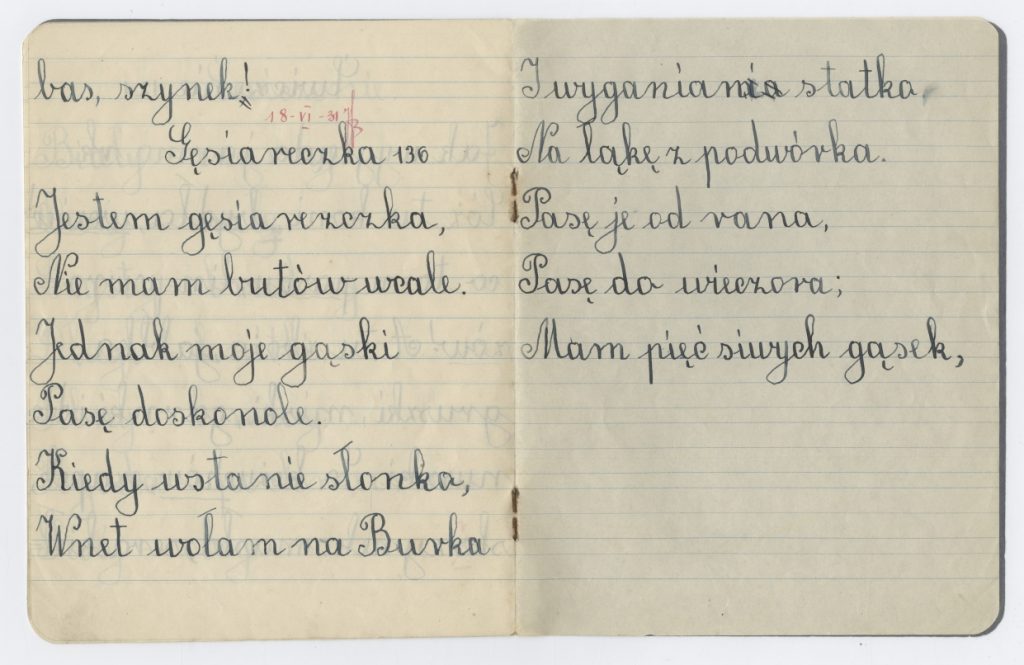 bas, szynek!
18-VI-31
Gęsiareczka 136
Jestem gęsiarezczka,
Nie mam butów wcale.
Jednak moje gąski
Pasę doskonole.
Kiedy wstanie słonko,
Wnet wołam na Burka
I wyganiamia statko,
Na łąkę z podwórka.
Pasę je od rana,
Pasę do wieczora;
Mam pięć siwych gąsek,